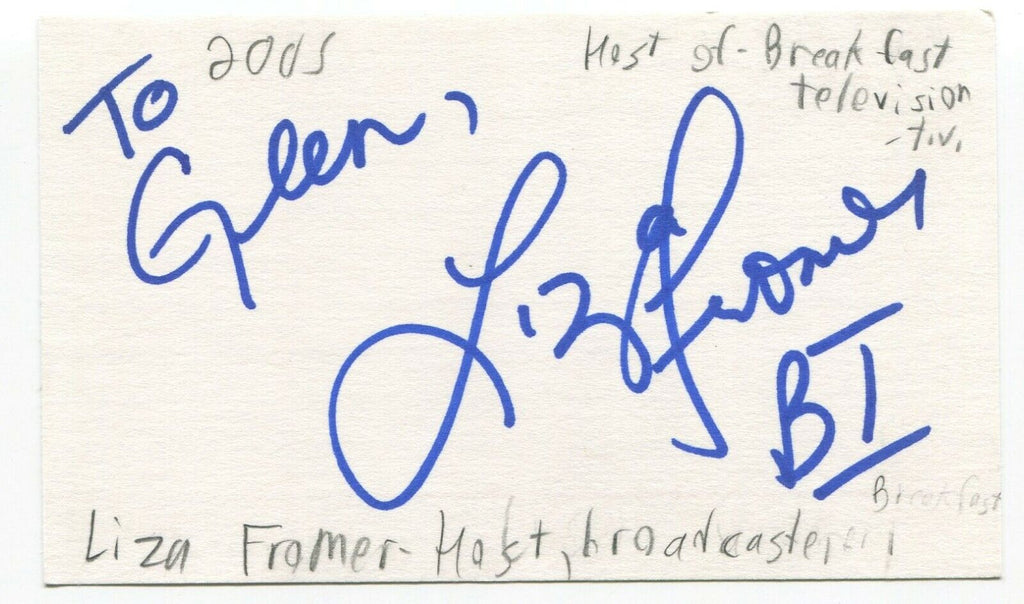 2005
Host of - Breakfast
television
- t.v.
To
Glen,
Liza Fromer
BT
Breakfast
Liza Fromer - Host, broadcaster